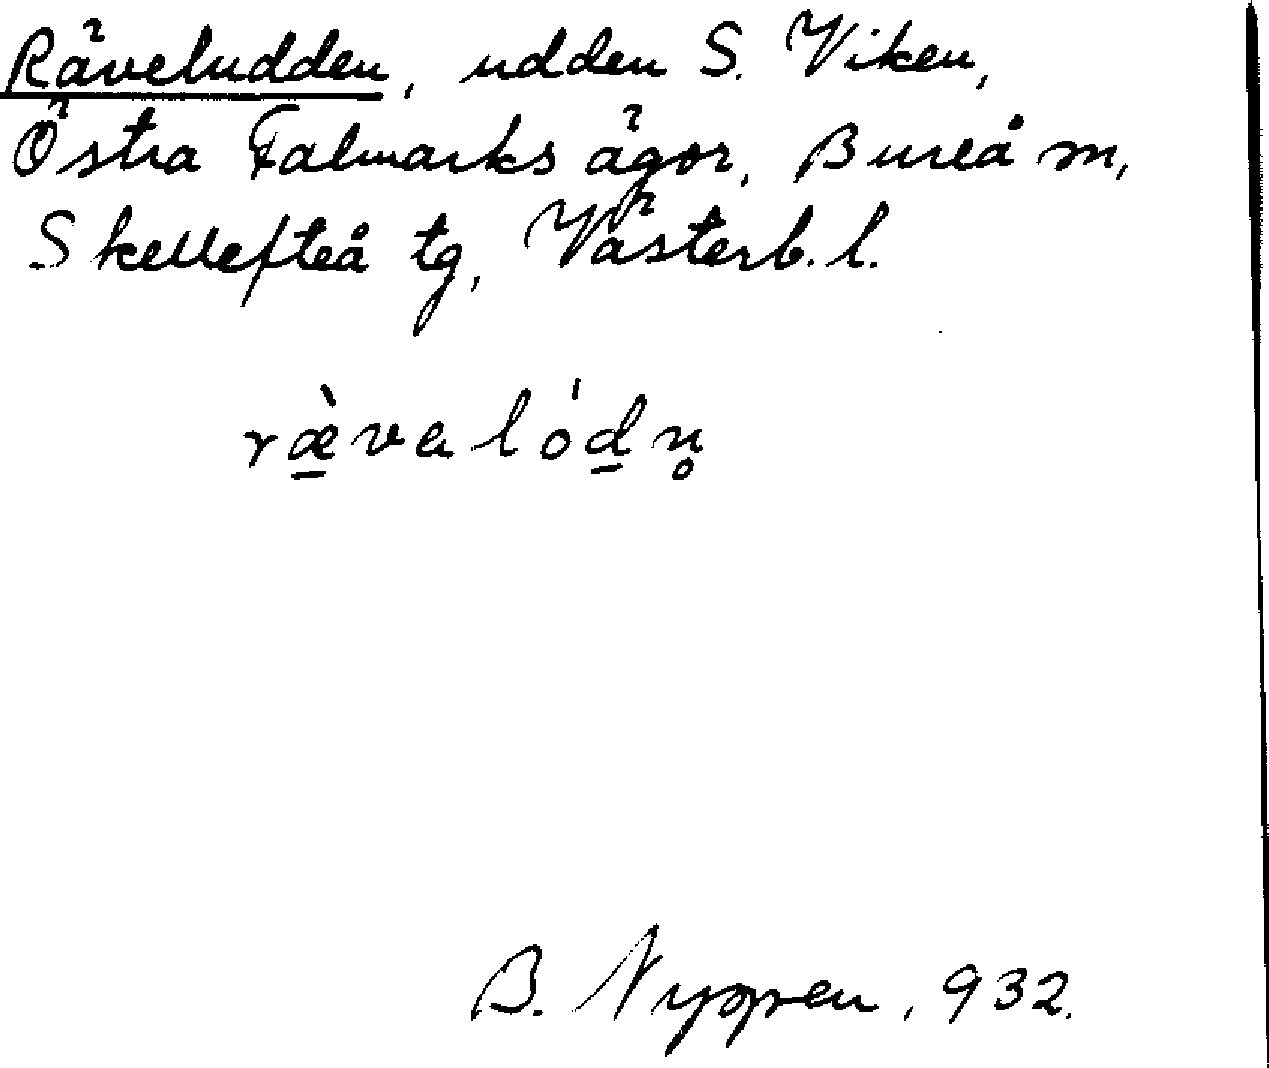 Räveludden, udden S. Viken,
Östra Falmarks ägor, Bureå m,
Skellefteå tg, Västerb. l.
ræ̠̀vɐlód̠n̥
B. Nyppen, 932.